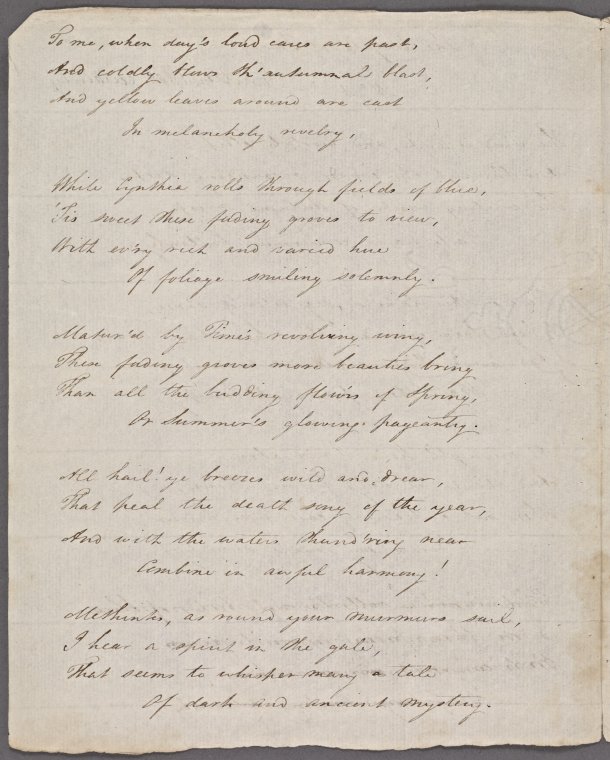 To me, when day's loud cares are past,
And coldly blows th' autumnal blast,
And yellow leaves around are cast
In melancholy revelry,
While Cynthia rolls through fields of blue,
'Tis sweet these fading groves to view,
With ev'ry rich and varied hue
Of foliage smiling solemnly.
Matur'd by Time's revolving wing,
These fading groves more beauties bring
Than all the budding flow'rs of Spring,
Or Summer's glowing pageantry.
All hail! ye breezes wild and drear,
That peal the death song of the year,
And with the waters thund'ring near
Combine in awful harmony!
Methinks, as round your murmurs sail,
I hear a spirit in the gale,
That seems to whisper many a tale
Of dark and ancient mystery.